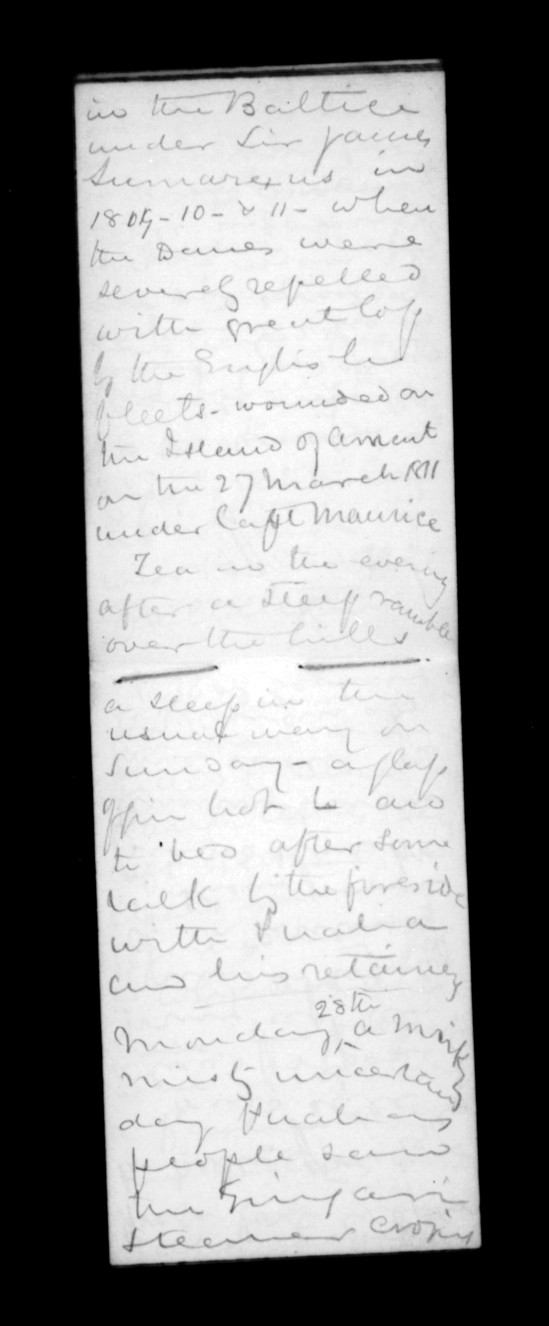 in the Baltice
under Sir James
Sumarexus in
1809-10- & 11- when
the Danes were
severely repelled
with great loss
by the English
fleets- wounded on
the Island of
on the 27 March 1811
under Capt Maurice
Tea in the evening
after a steep ramble
over the hills
a sleep in the
usual way on
Sunday- a glass
of gin hot and
to bed after some
talk by the fireside
with
and his retainers
Monday 28th a
misty uncertain
day
people saw
the
steamer